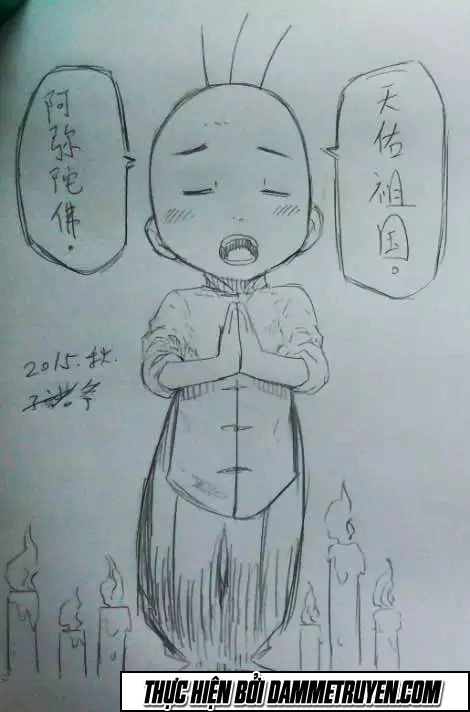 天佑祖国。
阿弥陀佛。
2015.秋.
THỰC HIỆN BỞI DAMMETRUYEN.COM